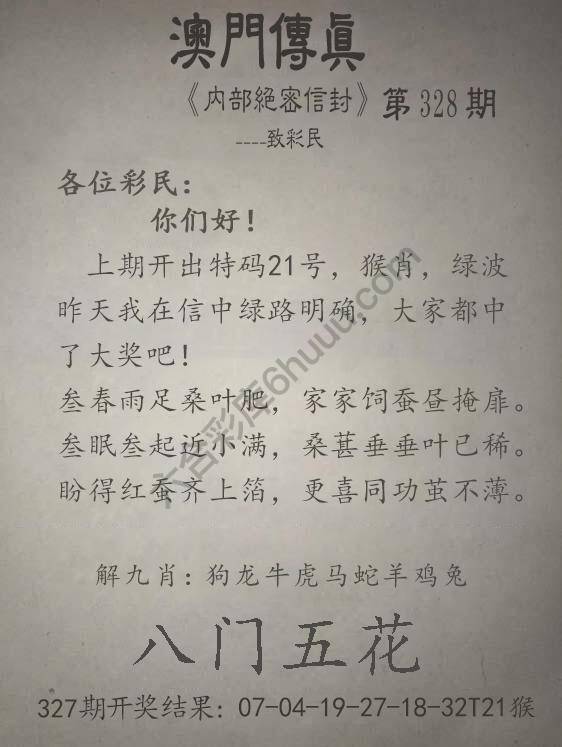 澳門傳真
《内部絕密信封》第328期
----致彩民
各位彩民：
你们好！
上期开出特码21号，猴肖，绿波
昨天我在信中绿路明确，大家都中
了大奖吧！
叁春雨足桑叶肥，家家饲蚕昼掩扉。
叁眠叁起近小满，桑葚垂垂叶已稀。
盼得红蚕齐上箔，更喜同功茧不薄。
解九肖：狗龙牛虎马蛇羊鸡兔
八门五花
327期开奖结果：07-04-19-27-18-32T21猴
六合彩库6huuu.com